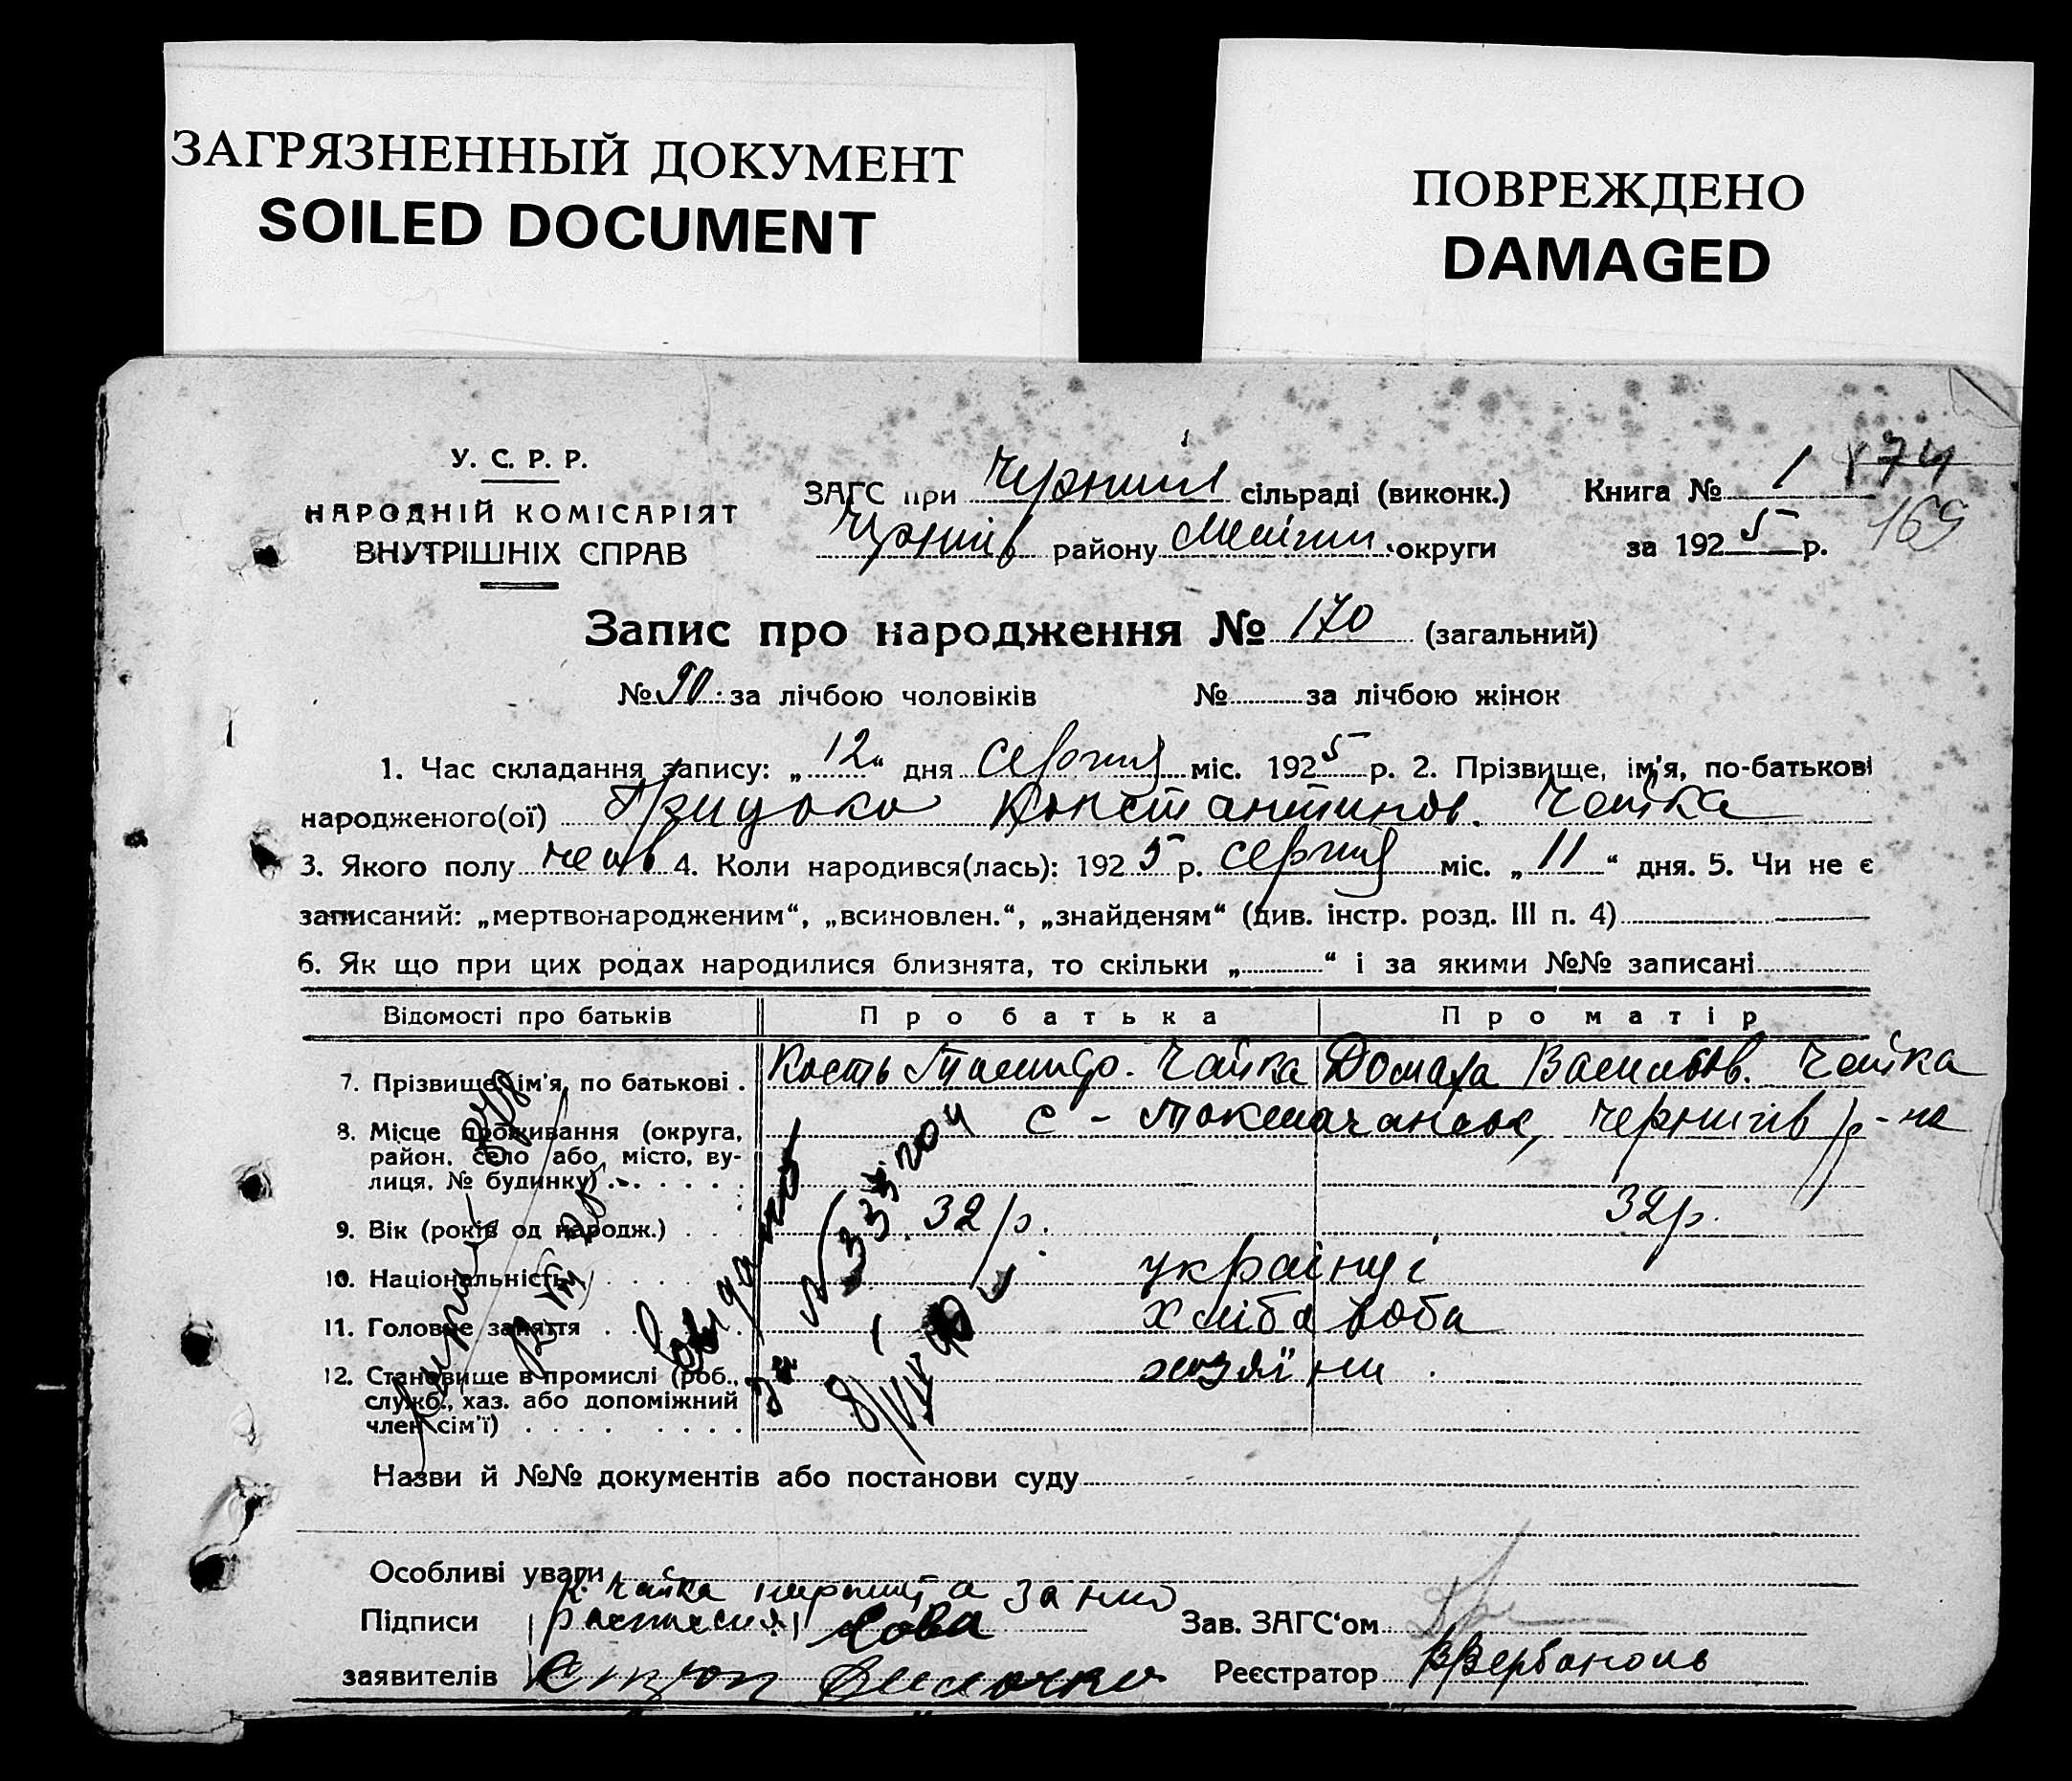 ЗАГРЯЗНЕННЫЙ ДОКУМЕНТ
SOILED DOCUMENT
ПОВРЕЖДЕНО
DAMAGED
У. С. Р. Р.
НАРОДНІЙ КОМІСАРІЯТ
ВНУТРІШНІХ СПРАВ
ЗАГС при сільраді (виконк.)
Черниів району округи
Книга № 1 174
за 1925 р. 169
Запис про народження № 170 (загальний)
№ 90 за лічбою чоловіків № за лічбою жінок
1. Час складання запису: „12“ дня серпня міс. 1925 р. 2. Прізвище, ім’я, по-батькові
народженого(ої) Грицько Константинов. Чайка
3. Якого полу чолов 4. Коли народився(лась): 1925 р. серпня міс. „11“ дня. 5. Чи не є
записаний: „мертвонародженим“, „всиновлен.“, „знайденям“ (див. інстр. розд. III п. 4)
6. Як що при цих родах народилися близнята, то скільки „ “ і за якими №№ записані
Відомості про батьків Про батька Про матір
7. Прізвище, ім’я, по батькові . Кость Чайка Домаха Васильов. Чайка
8. Місце проживання (округа, с - Токмачанськ, Чернигів р-на
район, село або місто, ву-
лиця, № будинку)
9. Вік (років од народж.) 32 р. 32 р.
10. Національність українці
11. Головне заняття хлібороба
12. Становище в промислі (роб., хозяїни
служб., хаз. або допоміжний
член сім’ї)
Назви й №№ документів або постанови суду
Особливі уваги
К. Чайка за нього
Підписи Сова Зав. ЗАГС‘ом
заявителів Реєстратор